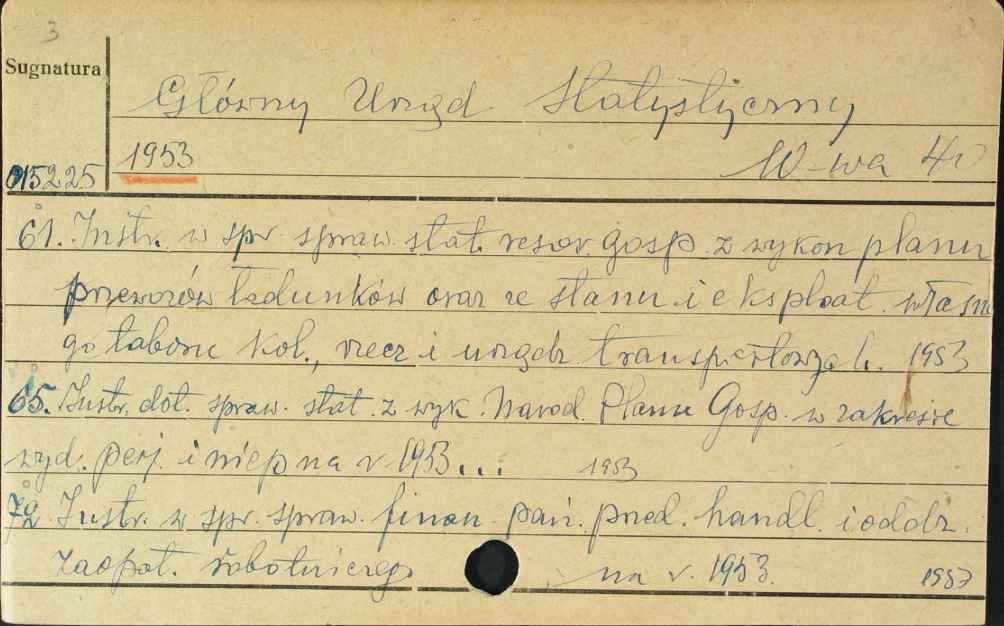 3
Sugnatura
Główny Urząd Statystyczny
1953
W-wa 40
015225
61. Instr. w spr. spraw. stat. resor. gosp. z wykon planu
przewozów ładunków oraz ze stanu i eksploat. własne
go taboru kol., rzecz i urządz transport. 1953
65. Instr. dot. spraw. stat. z wyk. Narod. Planu Gosp. w zakresie
wyd. perj. i niep na r 1953... 1953
72 Instr. w spr. spraw. finan. pań. pred. handl. i oddz.
zaopat. robotniczego na r. 1953. 1953